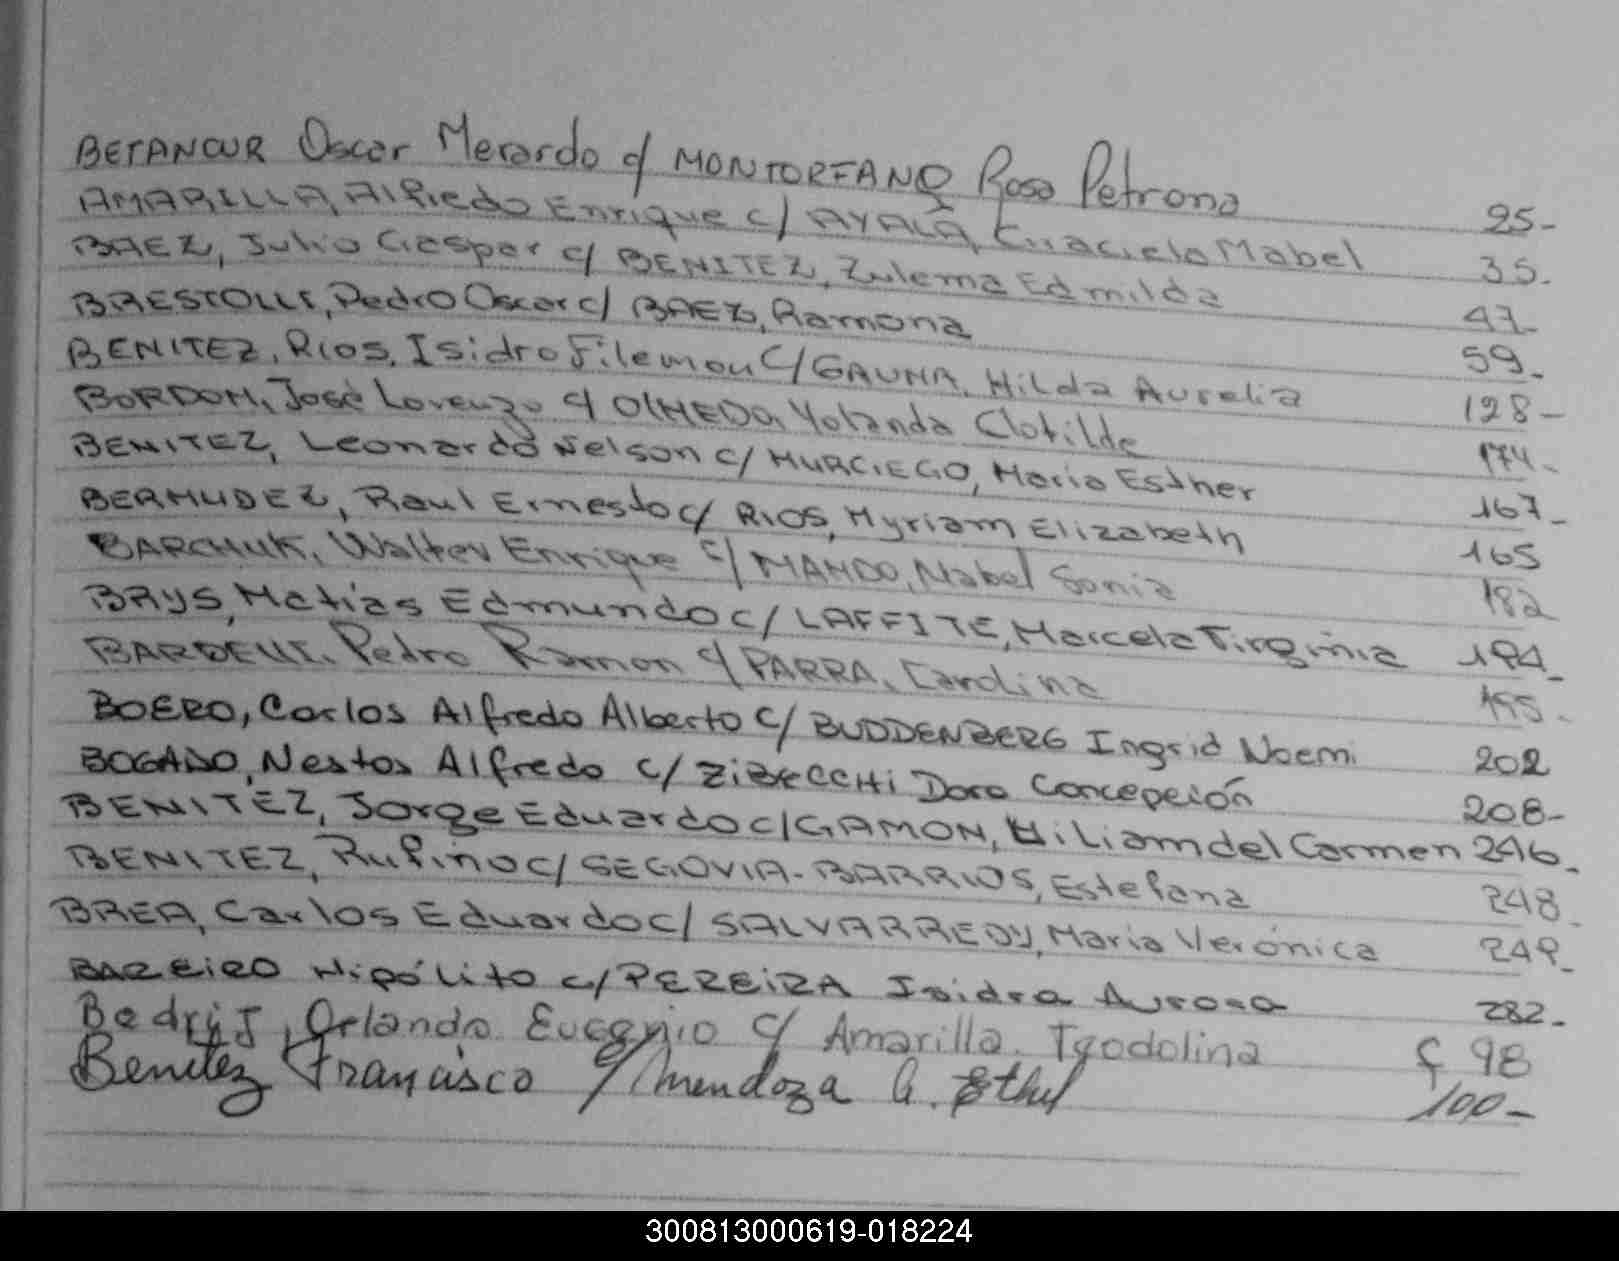 BETANCUR Oscar Merardo c/ MONTORFANO Rosa Petrona 25-
AMARILLA, Alfredo Enrique c/ AYALA, Graciela Mabel 35-
BAEZ, Julio Gaspar c/ BENITEZ, Zulema Edmilda 47-
BRESTOLLI, Pedro Oscar c/ BAEZ, Ramona 59-
BENITEZ, RIOS, Isidro Filemon c/ GAUNA, Hilda Aurelia 128-
BORDON, José Lorenzo c/ OLMEDO, Yolanda Clotilde 174-
BENITEZ, Leonardo Nelson c/ MURCIEGO, Maria Esther 167-
BERMUDEZ, Raul Ernesto c/ RIOS, Myriam Elizabeth 165
BARCHUK, Walter Enrique c/ MANDO, Mabel Sonia 182
BAYS, Matias Edmundo c/ LAFFITE, Marcela Virginia 194-
Pedro Ramon c/ PARRA, Carolina 195-
BOERO, Carlos Alfredo Alberto c/ BUDDENBERG Ingrid Noemi 202
BOGADO, Nestor Alfredo c/ ZIBECCHI Dora Concepción 208-
BENITEZ, Jorge Eduardo c/ GAMON, Liliam del Carmen 246-
BENITEZ, Rufino c/ SEGOVIA-BARRIOS, Estefana 248-
BREA, Carlos Eduardo c/ SALVARREDY, Maria Verónica 249-
BAREIRO Hipólito c/ PEREIRA Isidra Aurora 282-
Orlando Eugenio c/ Amarilla, Teodolina 98
Benitez Francisco c/ Mendoza G. Ethel 100-
300813000619-018224